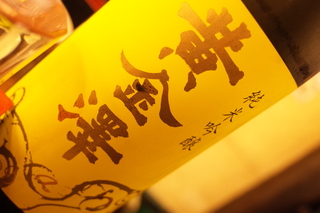 黄金澤
純米吟醸